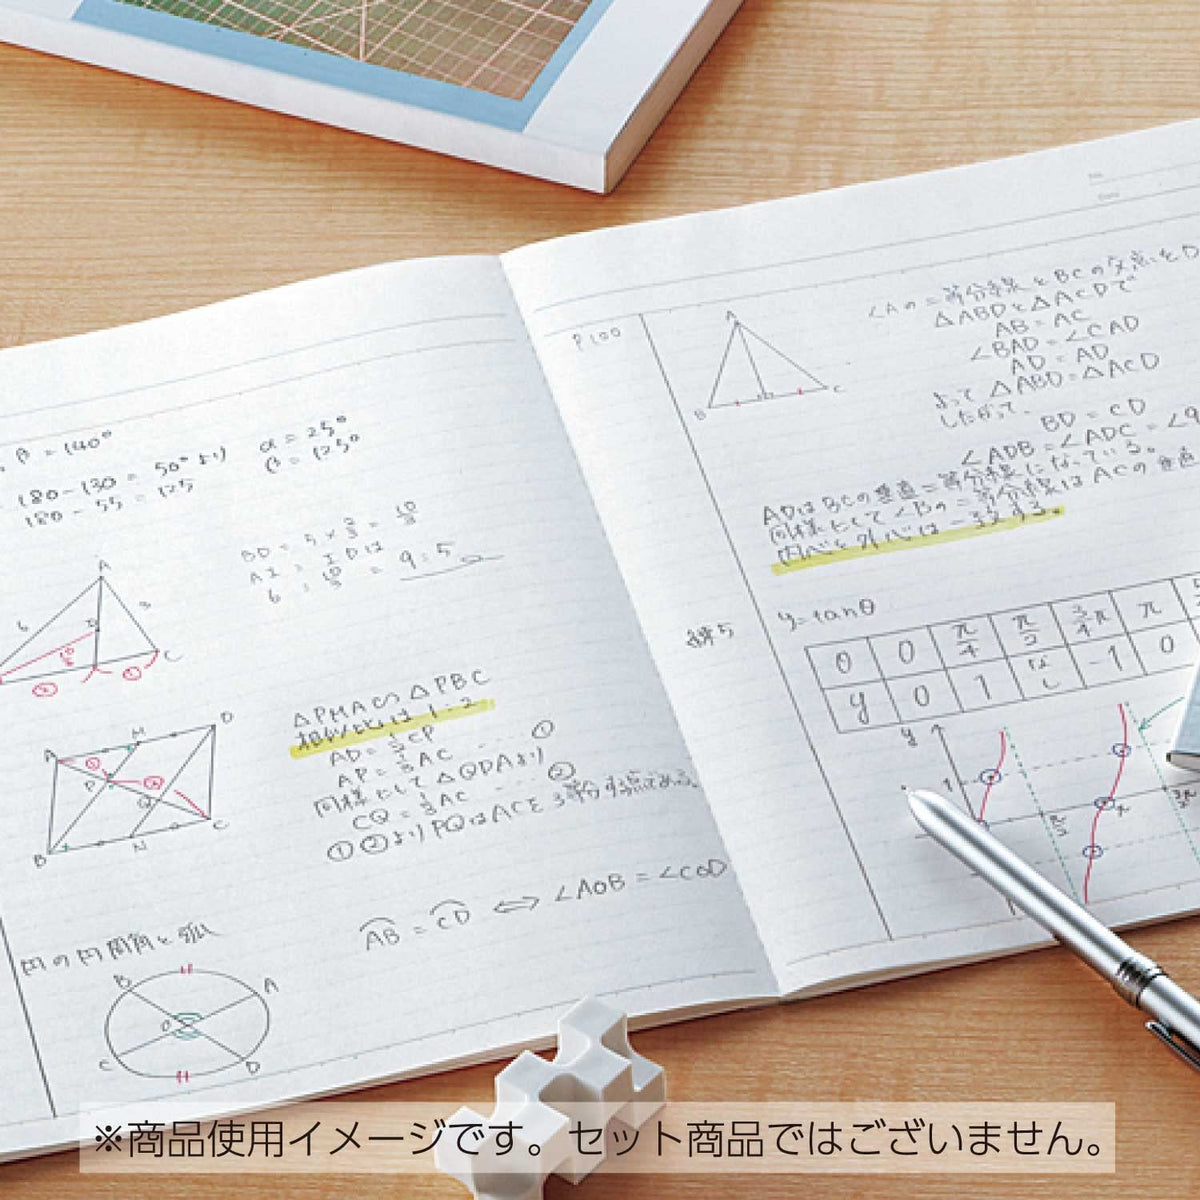 β=140°
180-130=50°より
180-55=125
α=25°
β=125°
BD=5×2/3=10/3
AI:IDは
6:10/3=9:5
A
6
3
I
10/3
C
③
①
△PMA∽△PBC
相似比は1:2
AD=1/2CP
AP=1/3AC…①
同様にして△QDAより
CQ=1/3AC…②
①②よりPQはACを3等分する点である。
A
M
D
P
Q
B
N
C
円の円周角と弧
AB=CD⇔∠AOB=∠COD
B
A
O
C
D
No.
Date
P100
A
B
C
∠Aの二等分線とBCの交点をD
△ABDと△ACDで
AB=AC
∠BAD=∠CAD
AD=AD
よって△ABD≡△ACD
したがって、
BD=CD
∠ADB=∠ADC=∠9
ADはBCの垂直二等分線になっている。
同様にして∠Bの二等分線はACの垂直
内心と外心は一致する。
練5
y=tanθ
θ 0 π/4 π/2 3/4π π 5
y 0 1 なし -1 0
y
1
π/2
π
3π/2
※商品使用イメージです。セット商品ではございません。